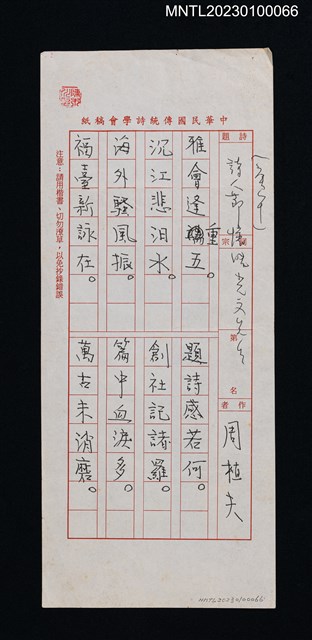 MNTL20230100066
中華民國傳統詩學會稿紙
詩題
詩人節懷沈光文先生
宗
第
名
作者
周植夫
雅會逢重五。
題詩感若何。
沉江悲汨水。
創社記諸羅。
海外騷風振。
篇中血淚多。
福臺新詠在。
萬古未消磨。
注意：請用楷書、切勿潦草，以免抄錄錯誤
MNTL20230100066